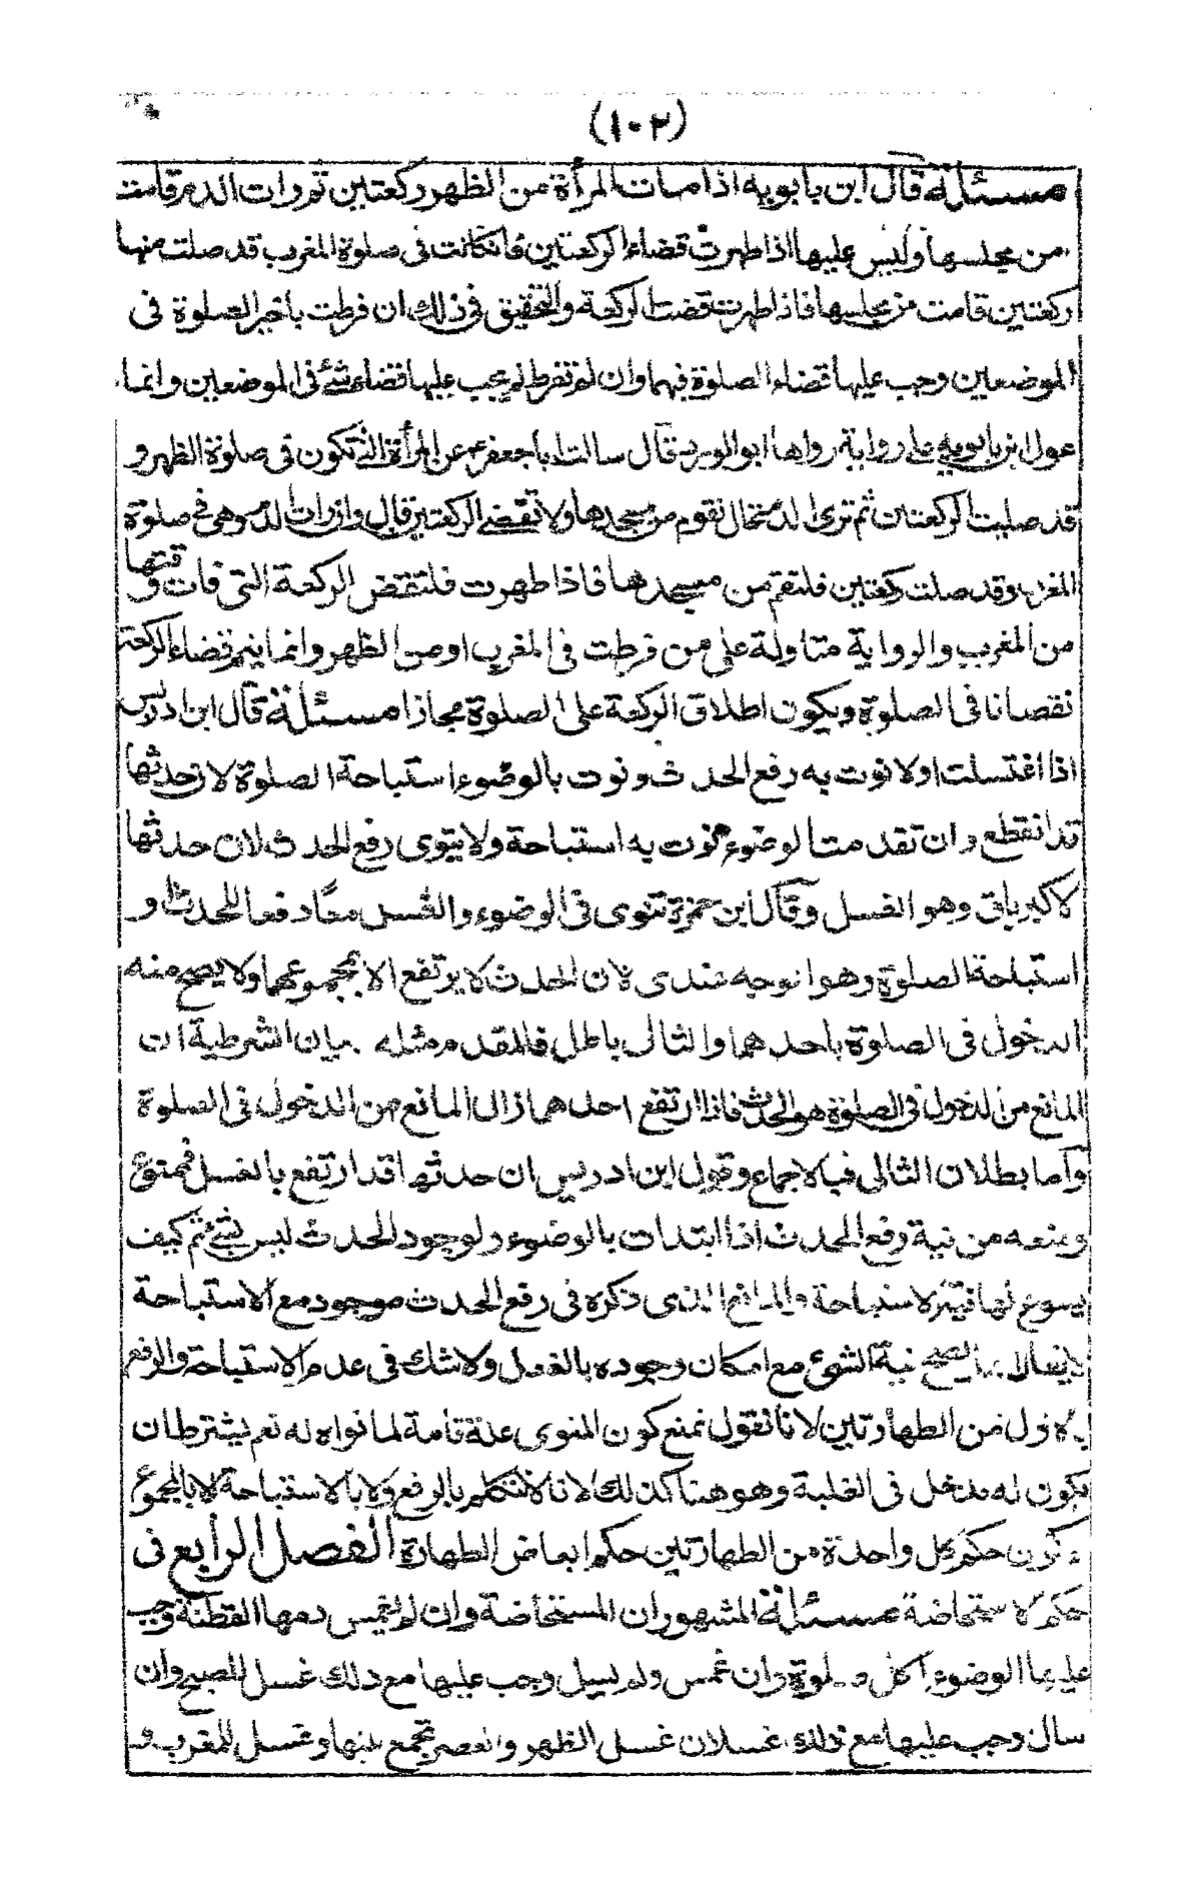 (١٠٢)
مسئلة قال ابن بابويه اذا صلت المرأة من الظهر ركعتين ثم رات الدم قامت
من مجلسها وليس عليها اذا طهرت قضاء الركعتين فانكانت فى صلوة المغرب قد صلت منها
ركعتين قامت من مجلسها فاذا طهرت قضت الركعة والتحقيق فى ذلك ان فرطت بتاخير الصلوة فى
الموضعين وجب عليها قضاء الصلوة فيهما وان لم تفرط لم يجب عليها قضاء شئ فى الموضعين وانما
عول ابن بابويه على رواية رواها ابو الورد قال سالت ابا جعفر ع عن المرأة التى تكون فى صلوة الظهر و
قد صليت الركعتين ثم ترى الدم قال تقوم من مسجدها ولا تقضى الركعتين قال وان رات الدم وهى فى صلوة
المغرب وقد صلت ركعتين فلتقم من مسجدها فاذا طهرت فلتقض الركعة التى فاتتها
من المغرب والرواية متاولة على من فرطت فى المغرب دون الظهر وانما يتم قضاء الركعة
نقصانا فى الصلوة ويكون اطلاق الركعة على الصلوة مجازا مسئلة قال ابن ادريس
اذا اغتسلت اولا نوت به رفع الحدث ونوت بالوضوء استباحة الصلوة لان حدثها
قد انقطع وان تقدمت الوضوء نوت به استباحة ولا ينوى رفع الحدث لان حدثها
الاكبر باق وهو الغسل وقال ابن حمزة تنوى فى الوضوء والغسل معا رفعا للحدث او
استباحة الصلوة وهو الوجه عندى لان الحدث لا يرتفع الا بمجموعهما ولا يصح منه
الدخول فى الصلوة باحدهما والتالى باطل فالمقدم مثله بيان الشرطية ان
المانع من الدخول فى الصلوة هو الحدث فاذا ارتفع احدهما زال المانع من الدخول فى الصلوة
وأما بطلان التالى فبالاجماع وقول ابن ادريس ان حدثها قد ارتفع بالغسل فممنوع
ومنعه من نية رفع الحدث اذا ابتدات بالوضوء لوجود الحدث ليس بشئ ثم كيف
يسوغ لها نية الاستباحة والمانع الذى ذكره فى رفع الحدث موجود مع الاستباحة
لا يقال انما يصح نية الشئ مع امكان وجوده بالفعل ولا شك فى عدم الاستباحة والرفع
بالاول من الطهارتين لانا نقول نمنع كون المنوى علة تامة لما نواه له نعم يشترط ان
يكون له مدخل فى العلية وهو هنا كذلك لانا لا نحكم بالرفع ولا بالاستباحة الا بالمجموع
فيكون حكم كل واحدة من الطهارتين حكم ابعاض الطهارة الفصل الرابع فى
حكم الاستحاضة مسئلة المشهور ان المستحاضة وان لم يغمس دمها القطنة وجب
عليها الوضوء لكل صلوة وان غمس ولم يسيل وجب عليها مع ذلك غسل للصبح وان
سال وجب عليها مع ذلك غسلان غسل الظهر والعصر تجمع بينها وغسل للمغرب و